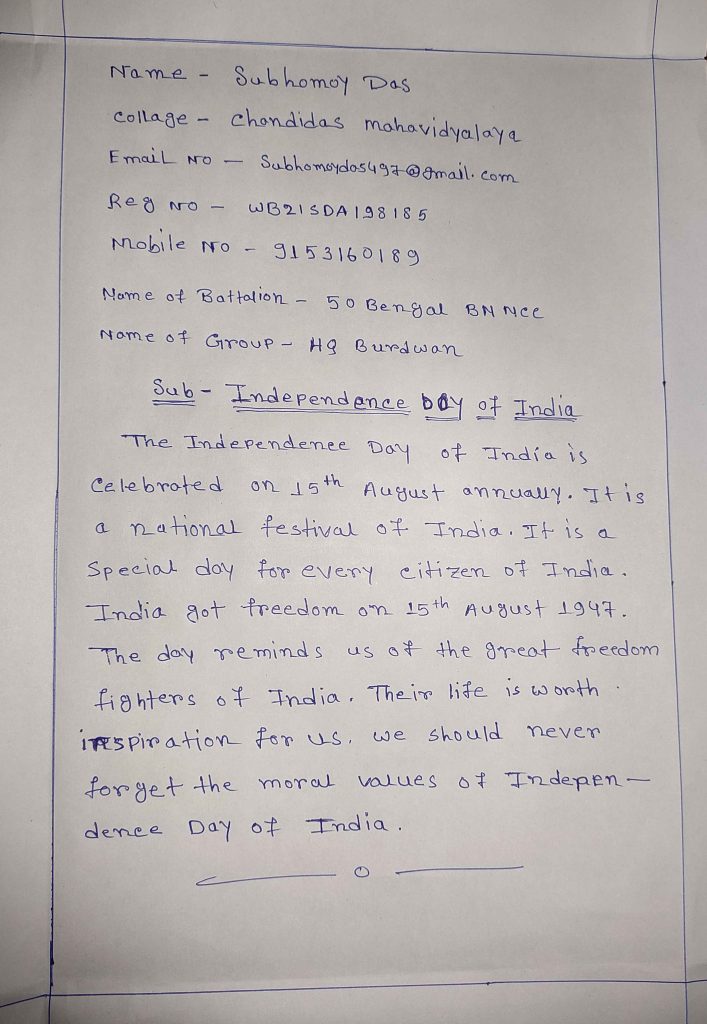 Name - Subhomoy Das
Collage - Chandidas mahavidyalaya
Email NO - Subhomoydas497@gmail.com
Reg NO - WB21SDA198185
Mobile NO - 9153160189
Name of Battalion - 50 Bengal BN NCC
Name of Group - HQ Burdwan
Sub - Independence Day of India
The Independence Day of India is
Celebrated on 15th August annually. It is
a national festival of India. It is a
Special day for every citizen of India.
India got freedom on 15th August 1947.
The day reminds us of the great freedom
fighters of India. Their life is worth
inspiration for us. we should never
forget the moral values of Indepen-
dence Day of India.